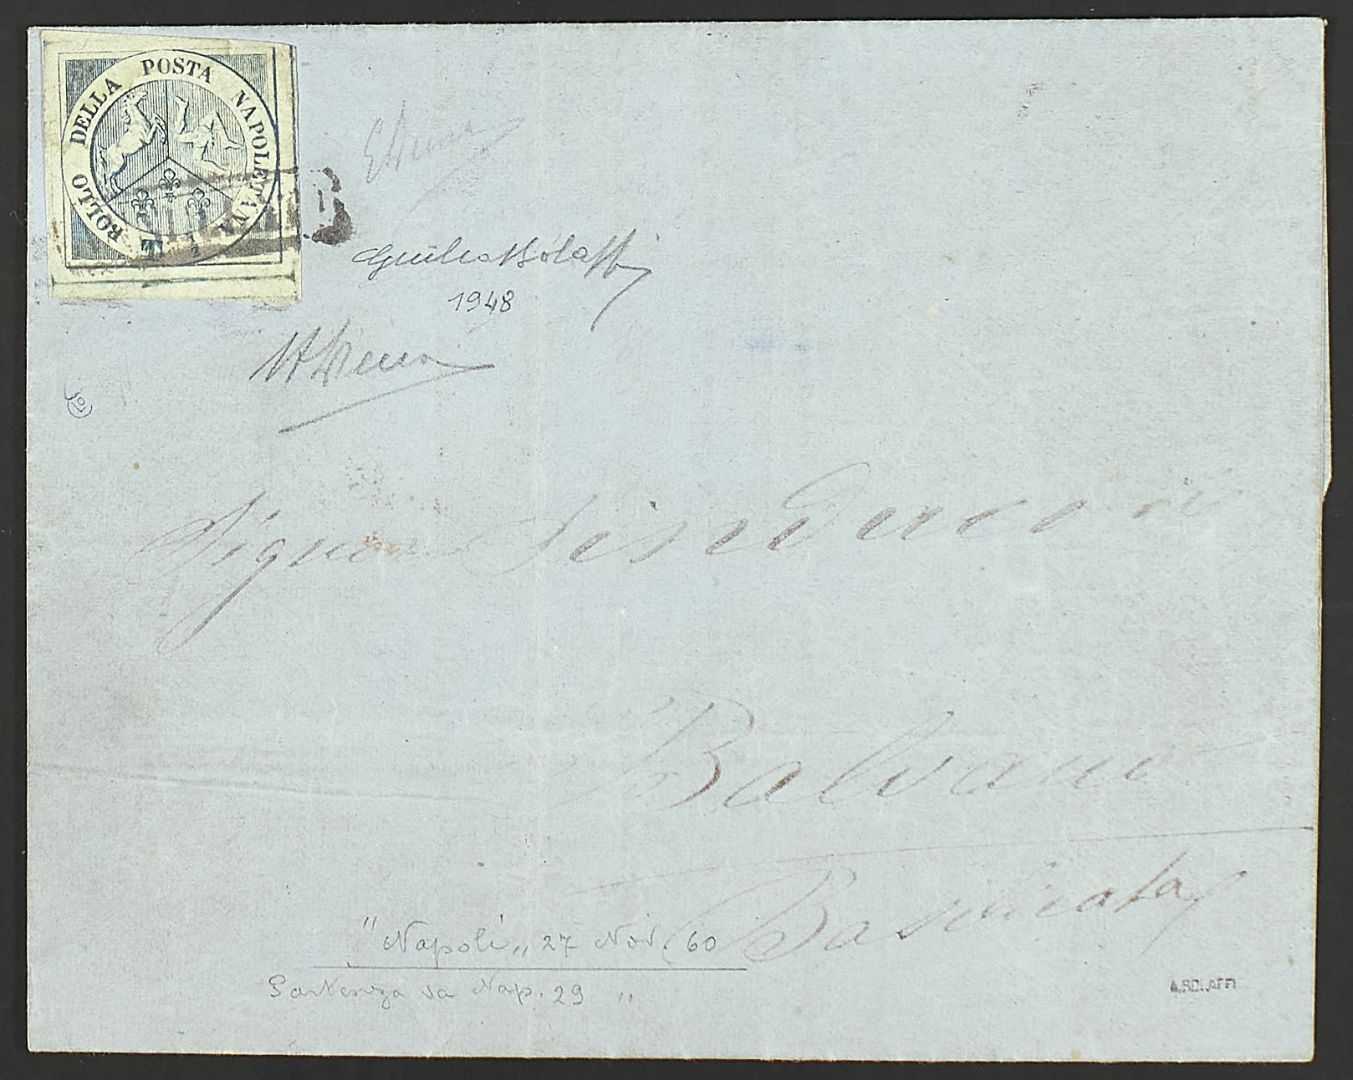 BOLLO DELLA POSTA NAPOLETANA
Giulio Bolaffi
1948
Signor Sindaco di
Balvano
Basilicata
"Napoli" 27 Nov. 60
Partenza da Nap. 29 "
A. BOLAFFI